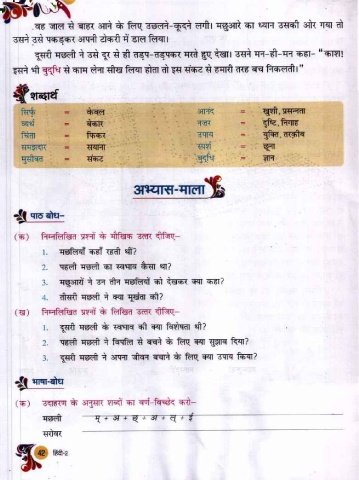 वह जाल से बाहर आने के लिए उछलने-कूदने लगी। मछुआरे का ध्यान उसकी ओर गया तो
उसने उसे पकड़कर अपनी टोकरी में डाल लिया।
दूसरी मछली ने उसे दूर से ही तड़प-तड़पकर मरते हुए देखा। उसने मन-ही-मन कहा- "काश!
इसने भी बुद्धि से काम लेना सीख लिया होता तो इस संकट से हमारी तरह बच निकलती।"
शब्दार्थ
सिर्फ़ = केवल आनंद = खुशी, प्रसन्नता
व्यर्थ = बेकार नज़र = दृष्टि, निगाह
चिंता = फिकर उपाय = युक्ति, तरकीब
समझदार = सयाना स्पर्श = छूना
मुसीबत = संकट बुद्धि = ज्ञान
अभ्यास-माला
पाठ बोध-
(क) निम्नलिखित प्रश्नों के मौखिक उत्तर दीजिए-
1. मछलियाँ कहाँ रहती थीं?
2. पहली मछली का स्वभाव कैसा था?
3. मछुआरों ने उन तीन मछलियों को देखकर क्या कहा?
4. तीसरी मछली ने क्या मूर्खता की?
(ख) निम्नलिखित प्रश्नों के लिखित उत्तर दीजिए-
1. दूसरी मछली के स्वभाव की क्या विशेषता थी?
2. पहली मछली ने विपत्ति से बचने के लिए क्या सुझाव दिया?
3. दूसरी मछली ने अपना जीवन बचाने के लिए क्या उपाय किया?
भाषा-बोध
(क) उदाहरण के अनुसार शब्दों का वर्ण-विच्छेद करो-
मछली म् + अ + छ् + अ + ल् + ई
सरोवर
42 हिंदी-2